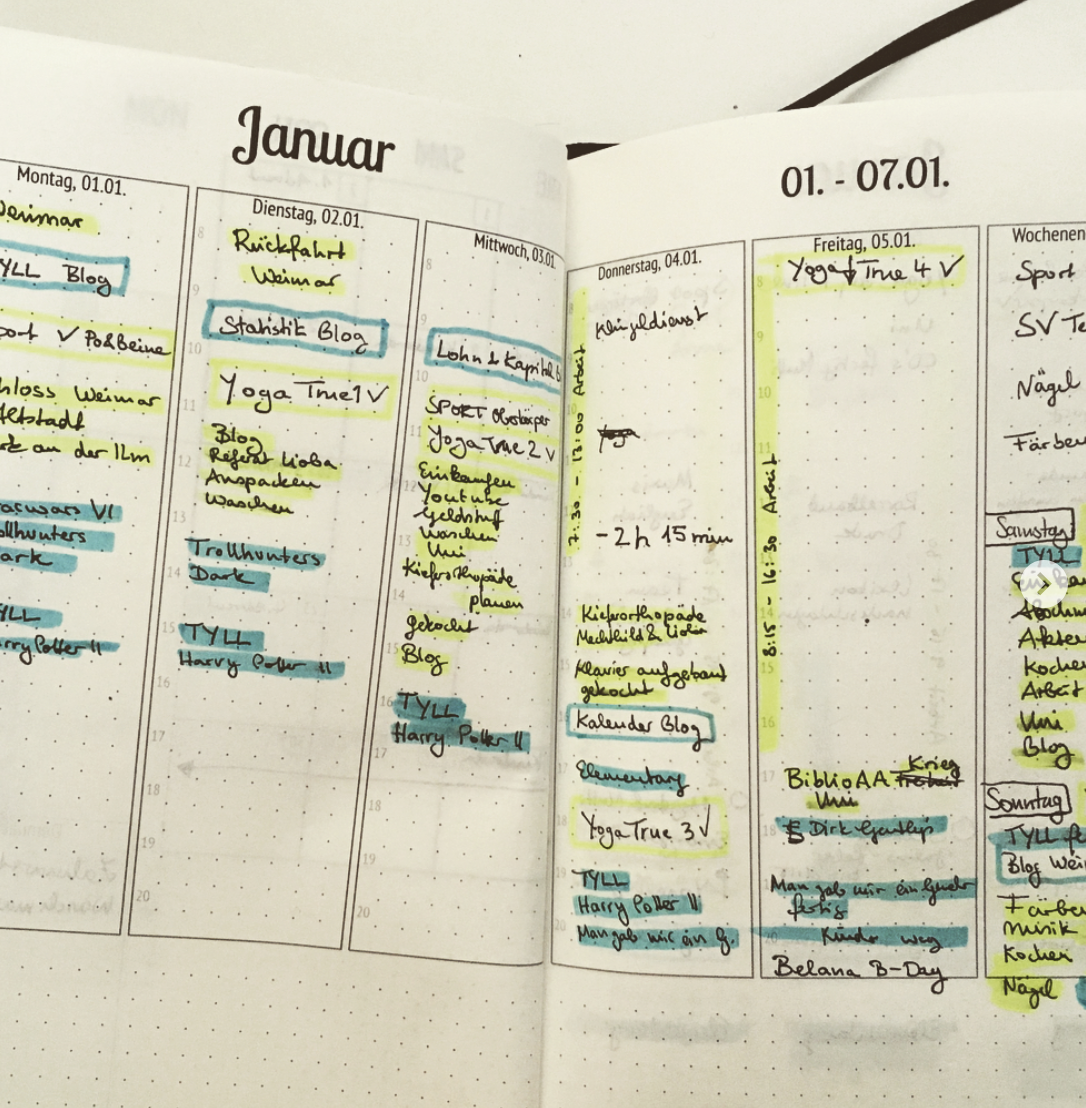 Januar
Montag, 01.01.
Weimar
TYLL Blog
Sport ✓ Po&Beine
Schloss Weimar
Altstadt
Park an der Ilm
Starwars VI
Trollhunters
Dark
TYLL
Harry Potter II
Dienstag, 02.01.
8
Rückfahrt
Weimar
9
Statistik Blog
10
Yoga True 1 ✓
11
Blog
Referat Lioba
12
Auspacken
Waschen
13
Trollhunters
14
Dark
15
TYLL
Harry Potter II
16
17
18
19
20
Mittwoch, 03.01
8
9
Lohn & Kapital
10
SPORT Oberkörper
11
Yoga True 2 ✓
Einkaufen
12
Youtube
Waschen
13
Uni
Kieferorthopäde
14
planen
gekocht
15
Blog
16
TYLL
Harry Potter II
17
18
19
20
01. - 07.01.
Donnerstag, 04.01.
7:30 - 13:00 Arbeit
Klingeldienst
Yoga
- 2h 15 min
Kieferorthopäde
Mechthild & Lioba
Klavier aufgebaut
gekocht
Kalender Blog
17
Elementary
18
Yoga True 3 ✓
19
TYLL
Harry Potter II
Man gab mir ein G.
20
Freitag, 05.01.
8
Yoga True 4 ✓
9
10
11
8:15 - 16:30 Arbeit
14
15
16
17
Krieg
BiblioAA Freiheit
Uni
18
Dirk Gently
Man gab mir ein
fertig
20
Kinder weg
Belana B-Day
Wochenen
Sport
SV
Nägel
Färben
Samstag
TYLL
Kochen
Arbeit
Uni
Blog
Sonntag
TYLL
Blog Wei
Färben
Musik
Kochen
Nägel